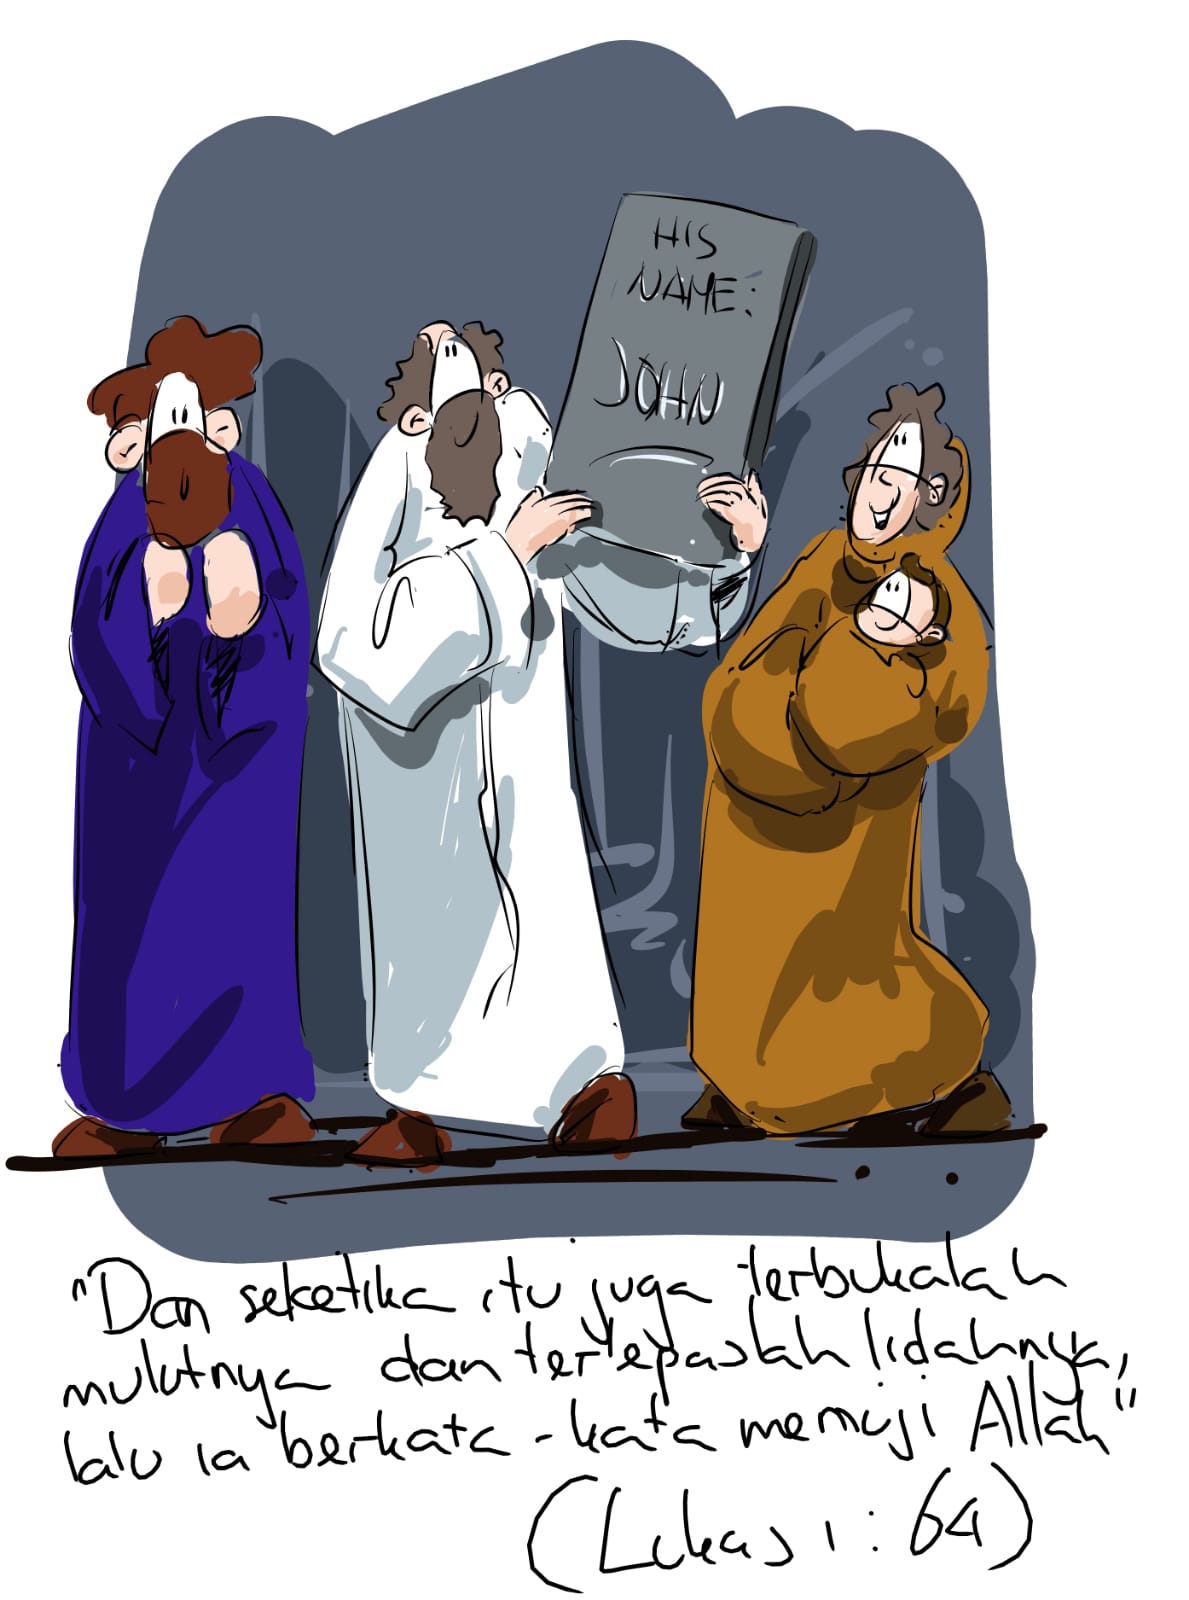 HIS
NAME:
JOHN
"Dan seketika itu juga terbukalah
mulutnya dan terlepaslah lidahnya,
lalu ia berkata-kata memuji Allah"
(Lukas 1:64)